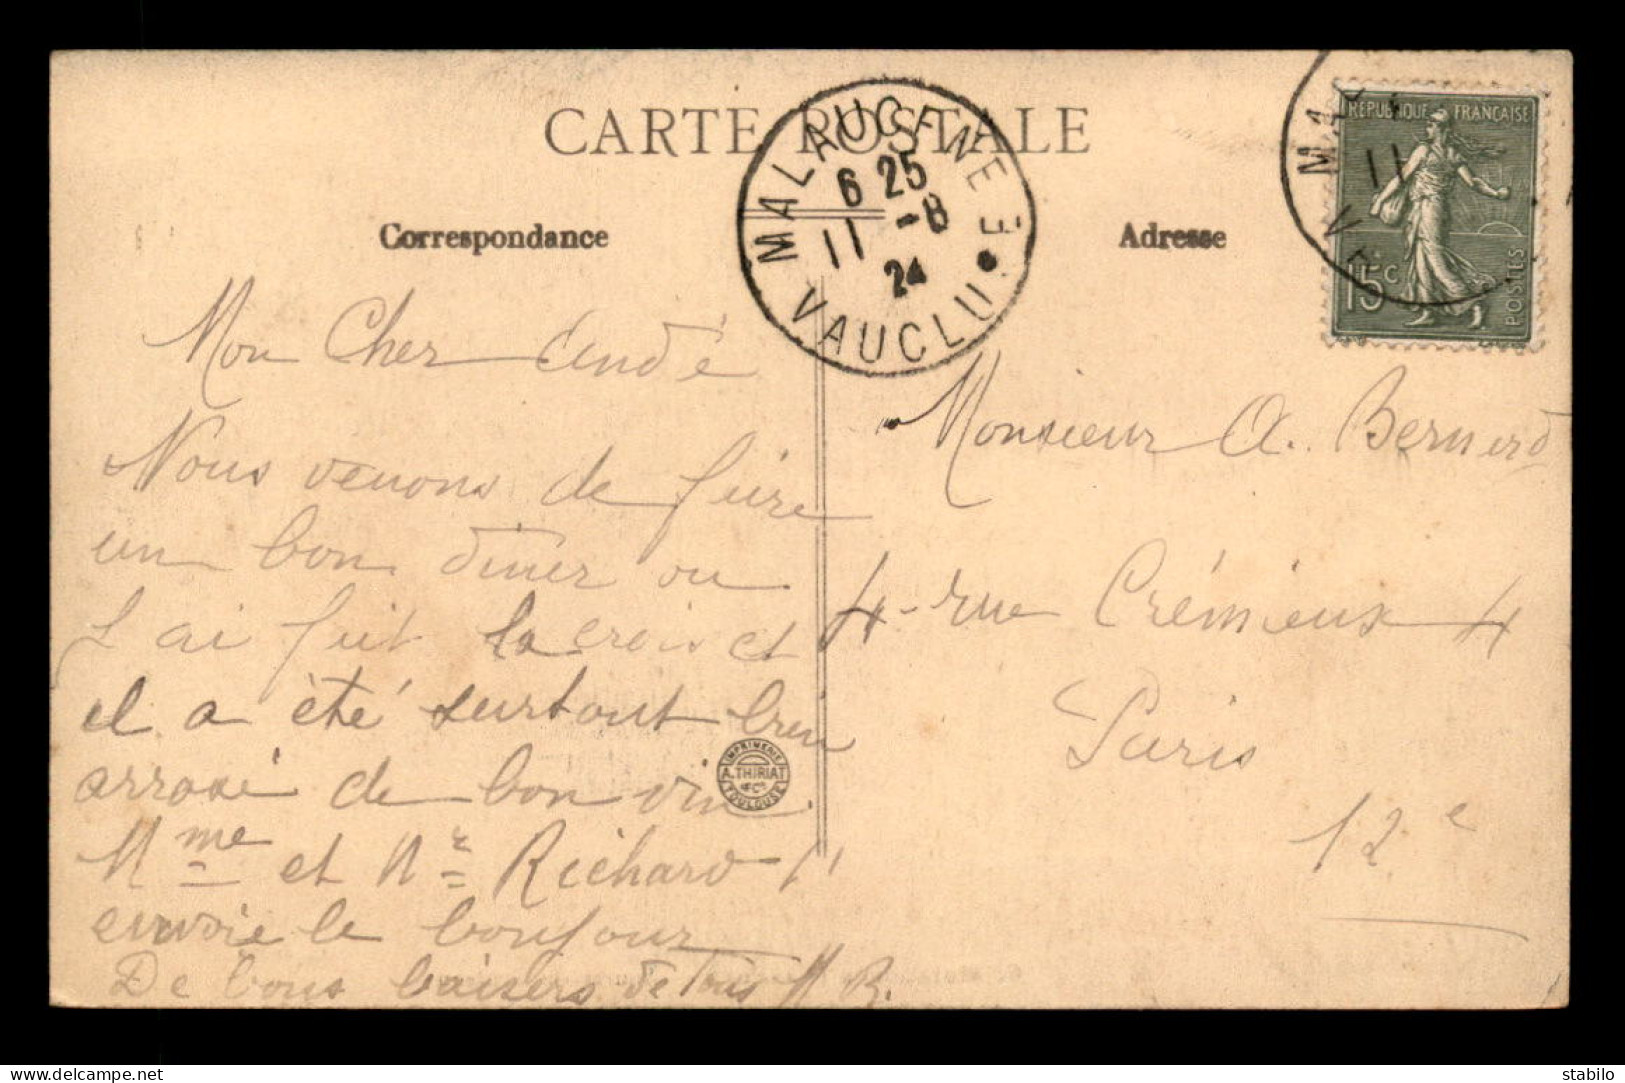 CARTE POSTALE
MALAUCENE
6 25
11 -8
24
VAUCLUSE
RÉPUBLIQUE FRANÇAISE
15c
POSTES
MAL
11
VA
Correspondance
Adresse
Mon Cher André
Nous venons de faire
un bon diner ou
J ai fait la crois et
il a été surtout bien
arrosé de bon vin
Mme et Mr Richard t'
envoie le bonjour
De bons baisers de tous M B.
IMPRIMERIE
A. THIRIAT
& Cie
TOULOUSE
Monsieur A. Bernard
4 - rue Crémieux 4
Paris
12e
www.delcampe.net
stabilo